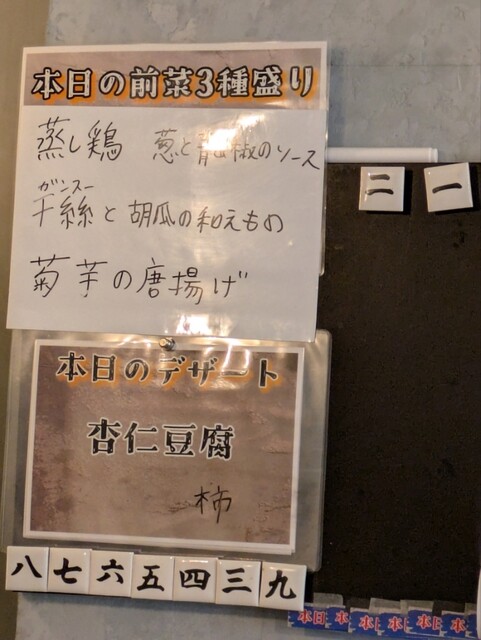 本日の前菜3種盛り
蒸し鶏 葱と青山椒のソース
ガンスー
干絲と胡瓜の和えもの
菊芋の唐揚げ
本日のデザート
杏仁豆腐
柿
二 一
八 七 六 五 四 三 九
本日 本日 本日 本日 本日 本日